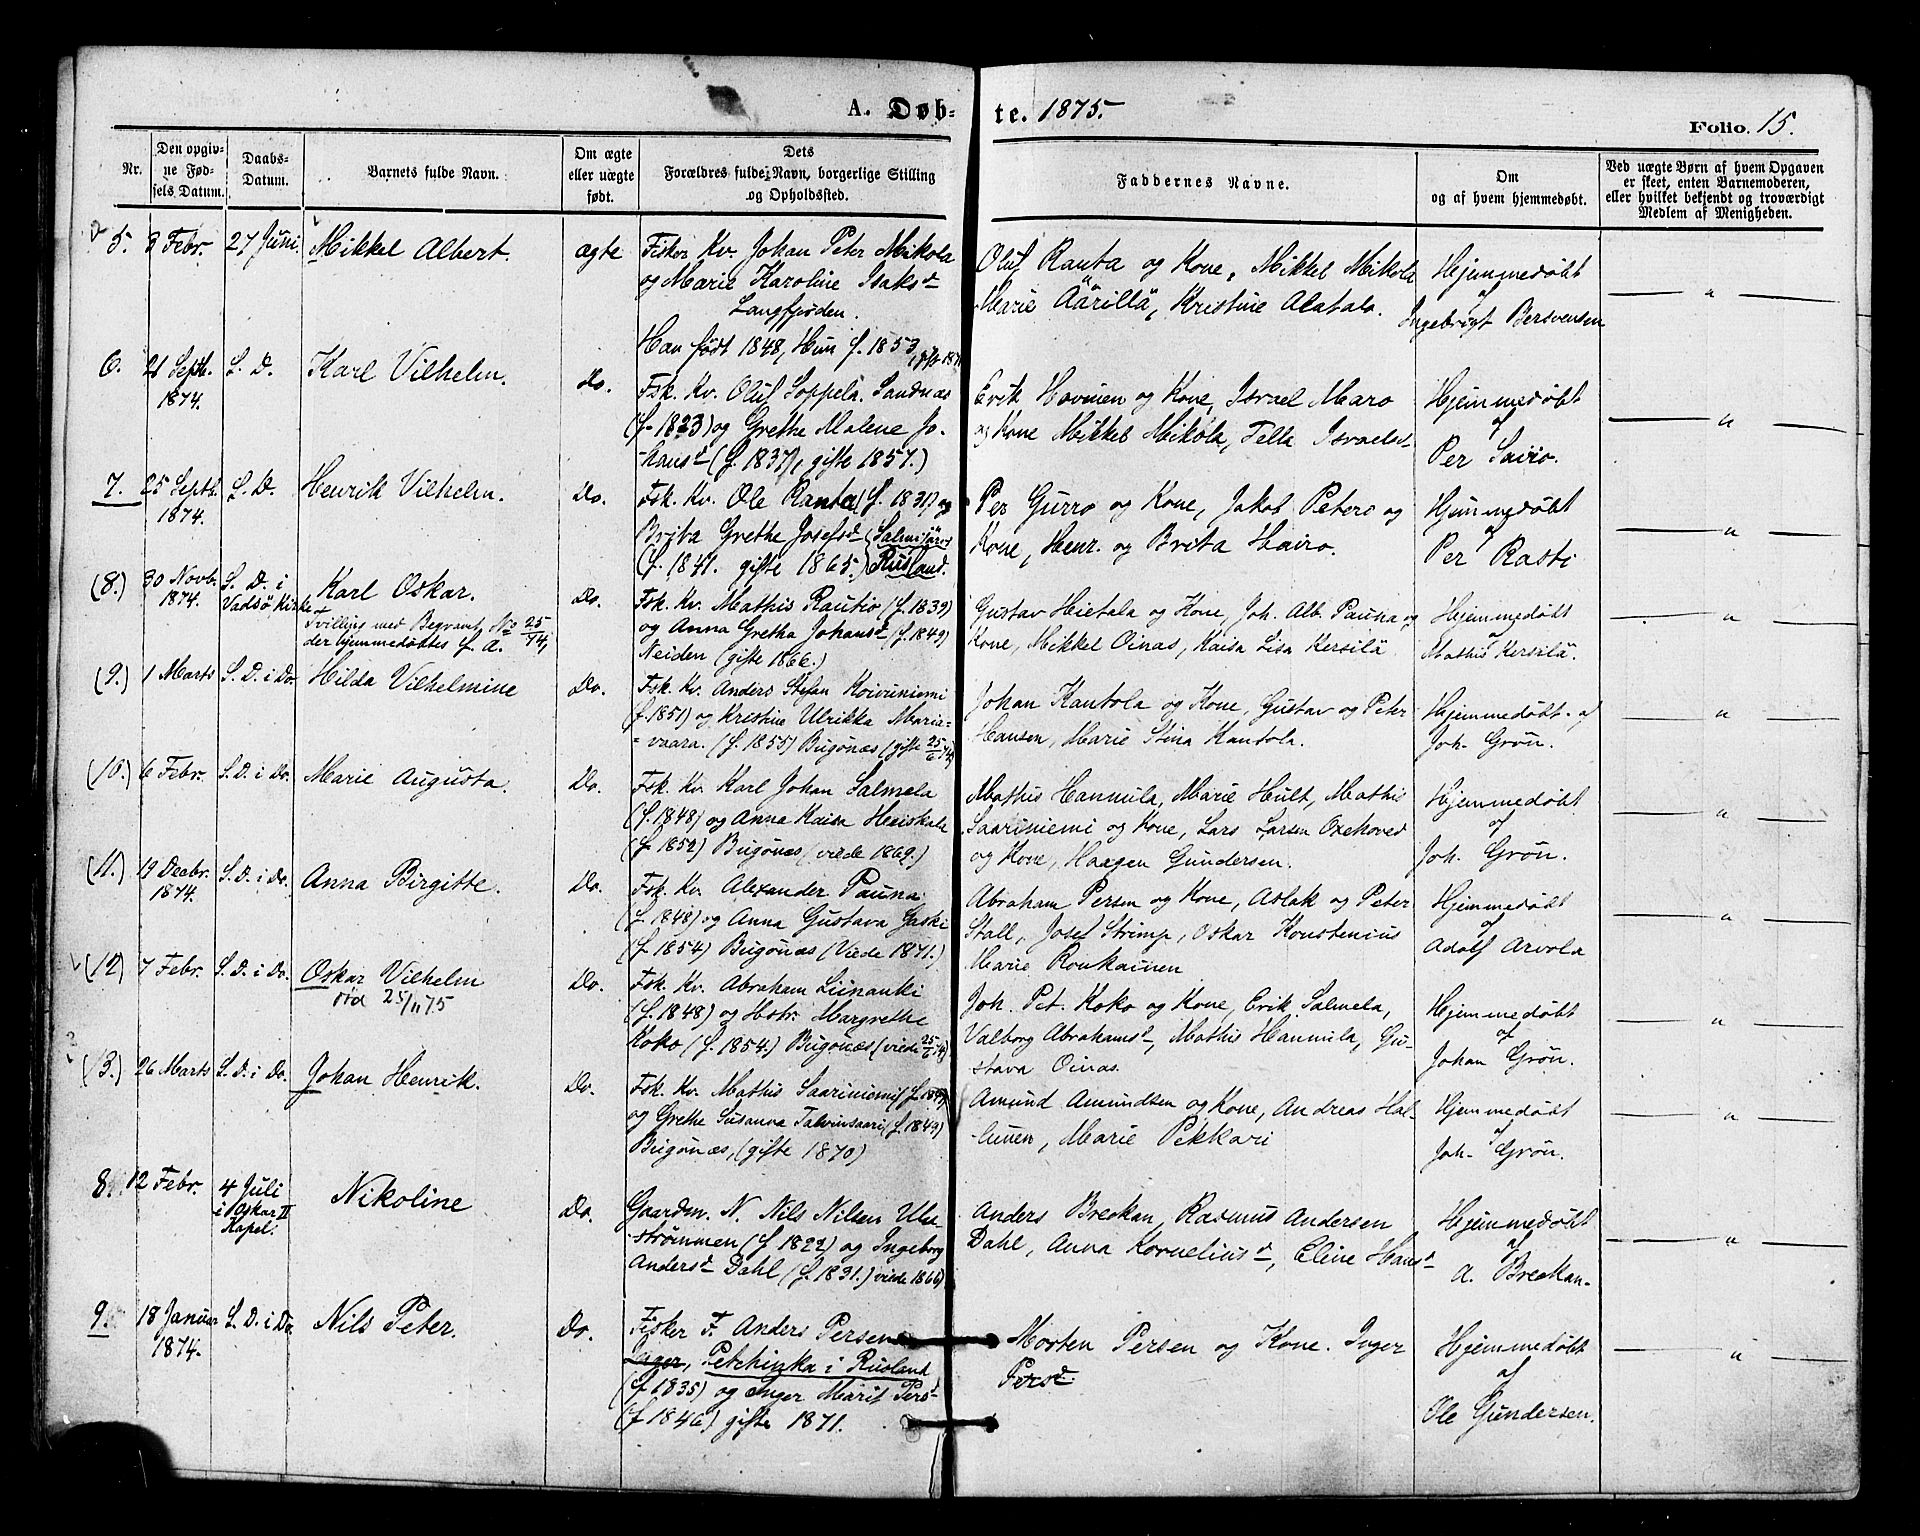 A. Døb-te. 1875.
Folio. 15.
Nr.
Den opgiv-
ne Fød-
sels Datum.
Daabs-
Datum.
Barnets fulde Navn.
Om ægte
eller uægte
født.
Dets
Forældres fulde Navn, borgerlige Stilling
og Opholdssted.
Faddernes Navne.
Om
og af hvem hjemmedøbt.
Ved uægte Børn af hvem Opgaven
er skeet, enten Barnemoderen,
eller hvilket bekjendt og troværdigt
Medlem af Menigheden.
5. 3 Febr. 27 Juni. Mikkel Albert. ægte
Fisker Kv. Johan Peter Mikola
og Marie Karoline Isaksd
Langfjorden.
Han født 1848, Hun f. 1853,
Oluf Ranta og Kone, Mikkel Mikola
Marie Äärillä, Kristine Alatalo.
Hjemmedøbt
af
Ingebrigt Bersvensen
— " —
6. 21 Septb. S. D. Karl Vilhelm. Do.
1874.
Fsk. Kv. Oluf Soppela. Sandnæs
(f. 1833) og Grethe Malene Jo-
hansd (f. 1837), gifte 1857.)
Erik Hovinen og Kone, Israel Maro
og Kone Mikkel Mikola, Tella Israelsd
Hjemmedøbt
af
Per Sairo.
— " —
7. 25 Septb. S. D. Henrik Vilhelm. Do.
1874.
Fsk. Kv. Ole Ranta (f. 1831) og
Brita Grethe Josefsd Salmijärvi
(f. 1841. gifte 1865.) Rusland.
Per Gurro og Kone, Jakob Petero og
Kone, Henr. og Brita Hairo.
Hjemmedøbt
af
Per Rasti
— " —
(8.) 30 Novb. S. D. i Karl Oskar. Do.
1874. Vadsø Kirke
Tvilling med Begravt. No 25/74,
der hjemmedøbtes f. A.
Fsk. Kv. Mathis Rautio (f. 1839)
og Anna Gretha Johansd (f. 1849)
Neiden (gifte 1866.)
Gustav Hietala og Kone, Joh. Alb. Pauna og
Kone, Mikkel Oinas, Kaisa Lisa Kersilä
Hjemmedøbt
af
Mathis Kersilä.
— " —
(9.) 1 Marts S. D. i Do. Hilda Vilhelmine Do.
Fsk. Kv. Anders Stefan Koivuniemi
(f. 1851) og Kristine Ulrikka Maria-
vaara. (f. 1855) Bugønæs (gifte 25/6 74)
Johan Kantola og Kone, Gustav og Peter
Hansen, Marie Stina Kantola.
Hjemmedøbt af
Joh. Grøn.
— " —
(10.) 6 Febr. S. D. i Do. Marie Augusta. Do.
Fsk. Kv. Karl Johan Salmela
(f. 1848) og Anna Kaisa Heiskala
(f. 1852) Bugønæs (viede 1869.)
Mathis Hannula, Marie Hult, Mathis
Saariniemi og Kone, Lars Larsen Oxehoved
og Kone, Haagen Gundersen.
Hjemmedøbt
af
Joh. Grøn.
— " —
(11.) 19 Decbr. S. D. i Do. Anna Birgitte. Do.
1874.
Fsk. Kv. Alexander Pauna
(f. 1848) og Anna Gustava Gaski
(f. 1854) Bugønæs (Viede 1871.)
Abraham Persen og Kone, Aslak og Peter
Stall, Josef Strimp, Oskar Konstenius
Marie Roukainen
Hjemmedøbt
af
Adolf Arvola
— " —
(12) 7 Febr. S. D. i Do. Oskar Vilhelm Do.
død 25/11 75
Fsk. Kv. Abraham Liinanki
(f. 1848) og Hstr. Margrethe
Koko (f. 1854.) Bugønæs (viede 25/6 74)
Joh. Pet. Koko og Kone, Erik Salmela,
Valborg Abrahamsd, Mathis Hannula, Gu-
stava Oinas.
Hjemmedøbt
af
Johan Grøn.
— " —
(13.) 26 Marts S. D. i Do. Johan Henrik. Do.
Fsk. Kv. Mathis Saariniemi
og Grethe Susanna Talvinsaari (f. 1849)
Bugønæs, (gifte 1870)
Amund Amundsen og Kone, Andreas Hal-
lunen, Marie Pekkari
Hjemmedøbt
af
Joh. Grøn.
— " —
8. 12 Febr. 4 Juli Nikoline Do.
i Oskar II
Kapel.
Gaardm. N. Nils Nilsen
strømmen (f 1822) og Ingeborg
Andersd Dahl (f. 1831.) viede 1866)
Anders Breckan, Rasmus Andersen
Dahl, Anna Korneliusd, Eline Hansd
Hjemmedøbt
af
A. Breckan.
— " —
9. 18 Januar S. D. i Do. Nils Peter. Do.
1874.
Fisker F. Anders Persen
Jager, Petchinka i Rusland
(f 1835) og Inger Marit Persd
(f 1846) gifte 1871.
Morten Persen og Kone. Inger
Persd.
Hjemmedøbt
af
Ole Gundersen.
— " —